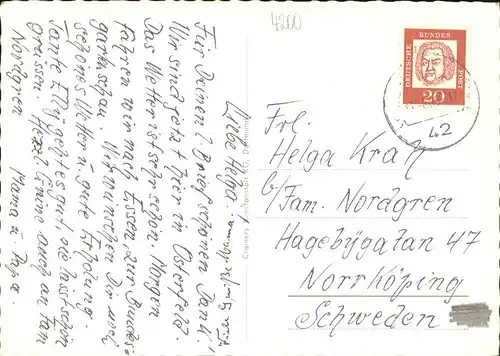 4200
Liebe Helga!
Für Deinen l. Brief schönen Dank!
Wir sind jetzt hier in Osterfeld.
Das Wetter ist sehr schön. Morgen
fahren wir nach Essen zur Bundes-
gartenschau. Wir wünschen Dir noch
schönes Wetter u. gute Erholung.
Tante Elly geht es gut, sie lässt schön
grüssen. Herzl. Grüsse auch an Fam.
Nordgren
Mama u. Papa.
Cramers Kunstanstalt KG., Dortmund
DEUTSCHE
BUNDES
POST
20
42
Frl.
Helga Krah
b/Fam. Nordgren
Hagebygatan 47
Norrköping
Schweden